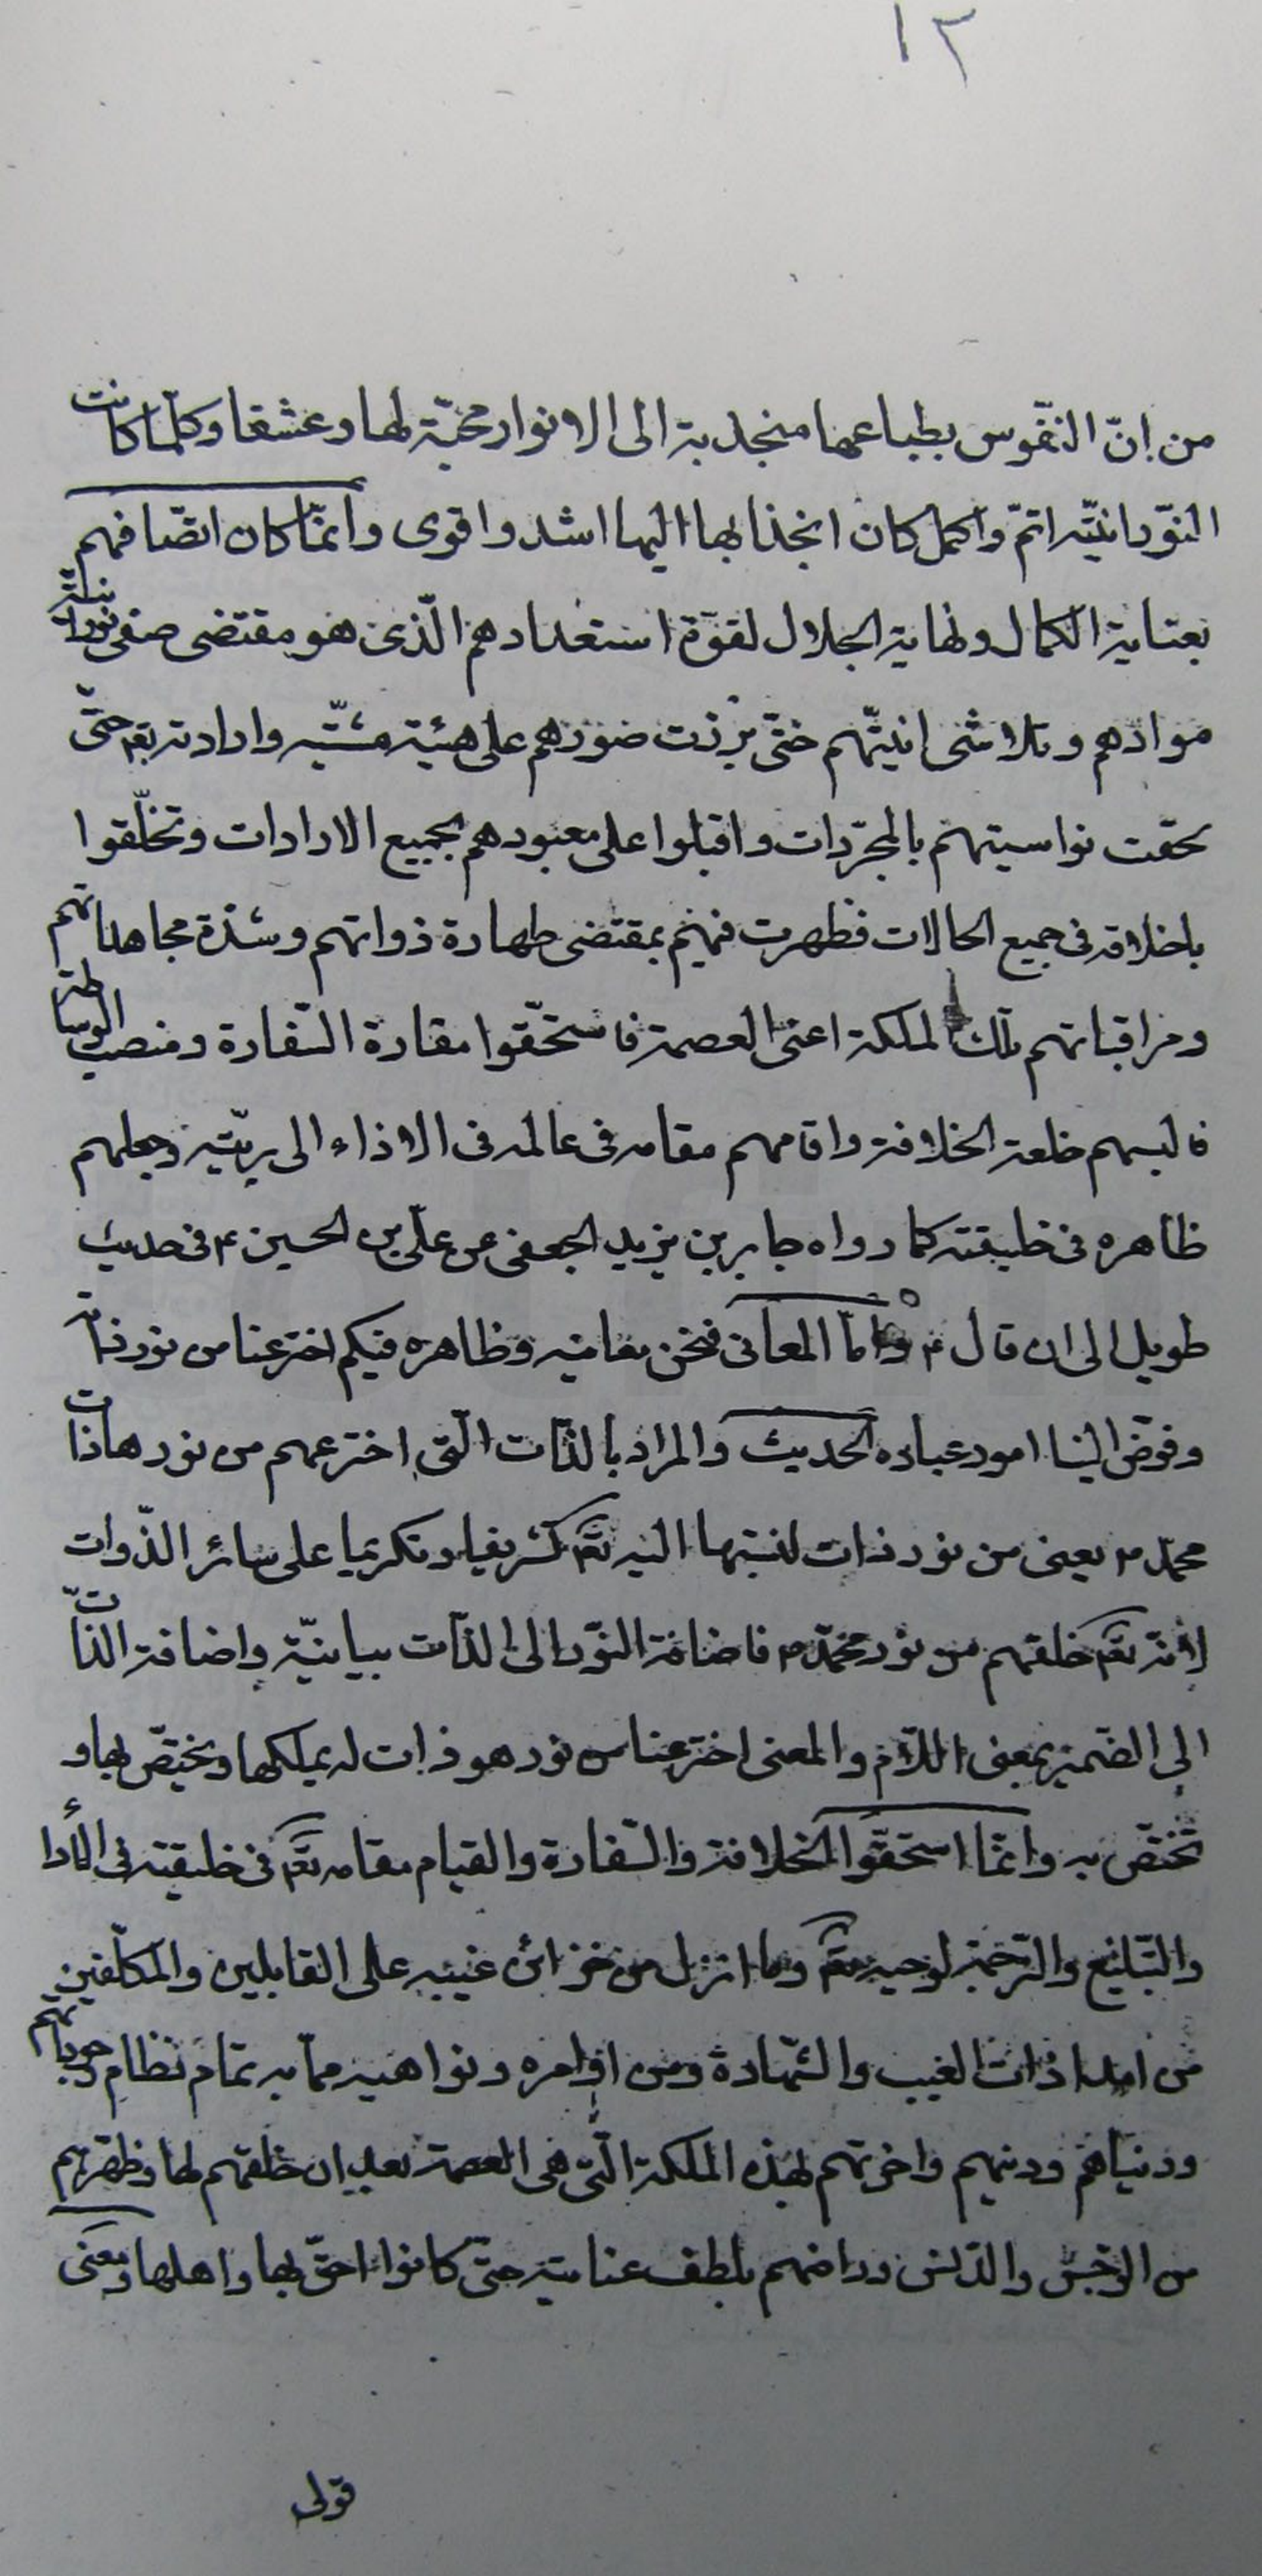 ١٢
من انّ النّفوس بطباعها منجذبة الى الانوار محبّة لها وعشقا وكلّما كانت
النّورانيّة اتمّ واكمل كان انجذابها اليها اشد واقوى وانمّا كان اتصّافهم
بعناية الكمال ونهاية الجلال لقوّة استعدادهم الّذى هو مقتضى صفى نورانية
موادهم وتلاشى انيتّهم حتّى برزت صورهم على هيئة مشيّته وارادته تعم حتّى
تحقت نواسيتهم بالمجرّدات واقبلوا على معبودهم بجميع الارادات وتخلّقوا
باخلاقه فى جميع الحالات فظهرت فيهم بمقتضى طهارة ذواتهم وشدّة مجاهداتهم
ومراقباتهم تلك الملكة اعنى العصمة فاستحقّوا مقارة السّفارة ومنصب الوساطة
فالبسهم خلعة الخلافة واقامهم مقامه فى عالمه فى الاداء الى بريّته وجعلهم
ظاهره فى خليقته كما رواه جابر بن يزيد الجعفى عن علّى بن الحسين ع فى حديث
طويل الى ان قال ع وامّا المعانى فنحن معانيه وظاهره فيكم اخترعنا من نور ذاته
وفوّض الينا امور عباده الحديث والمراد بالذّات الّتى اخترعهم من نورها ذات
محمّد ص يعنى من نور ذات لنسبتها اليه تعم تشريفا وتكريما على سائر الذّوات
لانّه تعم خلقهم من نور محمّد ص فاضافة النّور الى الذّات بيانيّة واضافة الذّات
الى الضمير بمعنى اللاّم والمعنى اخترعنا من نور هو ذات له يملكها ويختصّ بها و
تختصّ به وانمّا استحقّوا الخلافة والسّفارة والقيام مقامه تعم فى خليقته فى الأداء
والتّبليغ والترّجمة لوحيه تعم وما انزل من خزائن غيبه على القابلين والمكلّفين
من امدادات الغيب والشّهادة ومن اوامره ونواهيه ممّا به تمام نظام وجوداتهم
ودنياهم ودينهم واخرتهم لهذه الملكة الّتى هى العصمة بعد ان خلقهم لها وطهّرهم
من الرّجس والدّنس وراضهم بلطف عنايته حتّى كانوا احقّ بها واهلها ومعنى
قولى